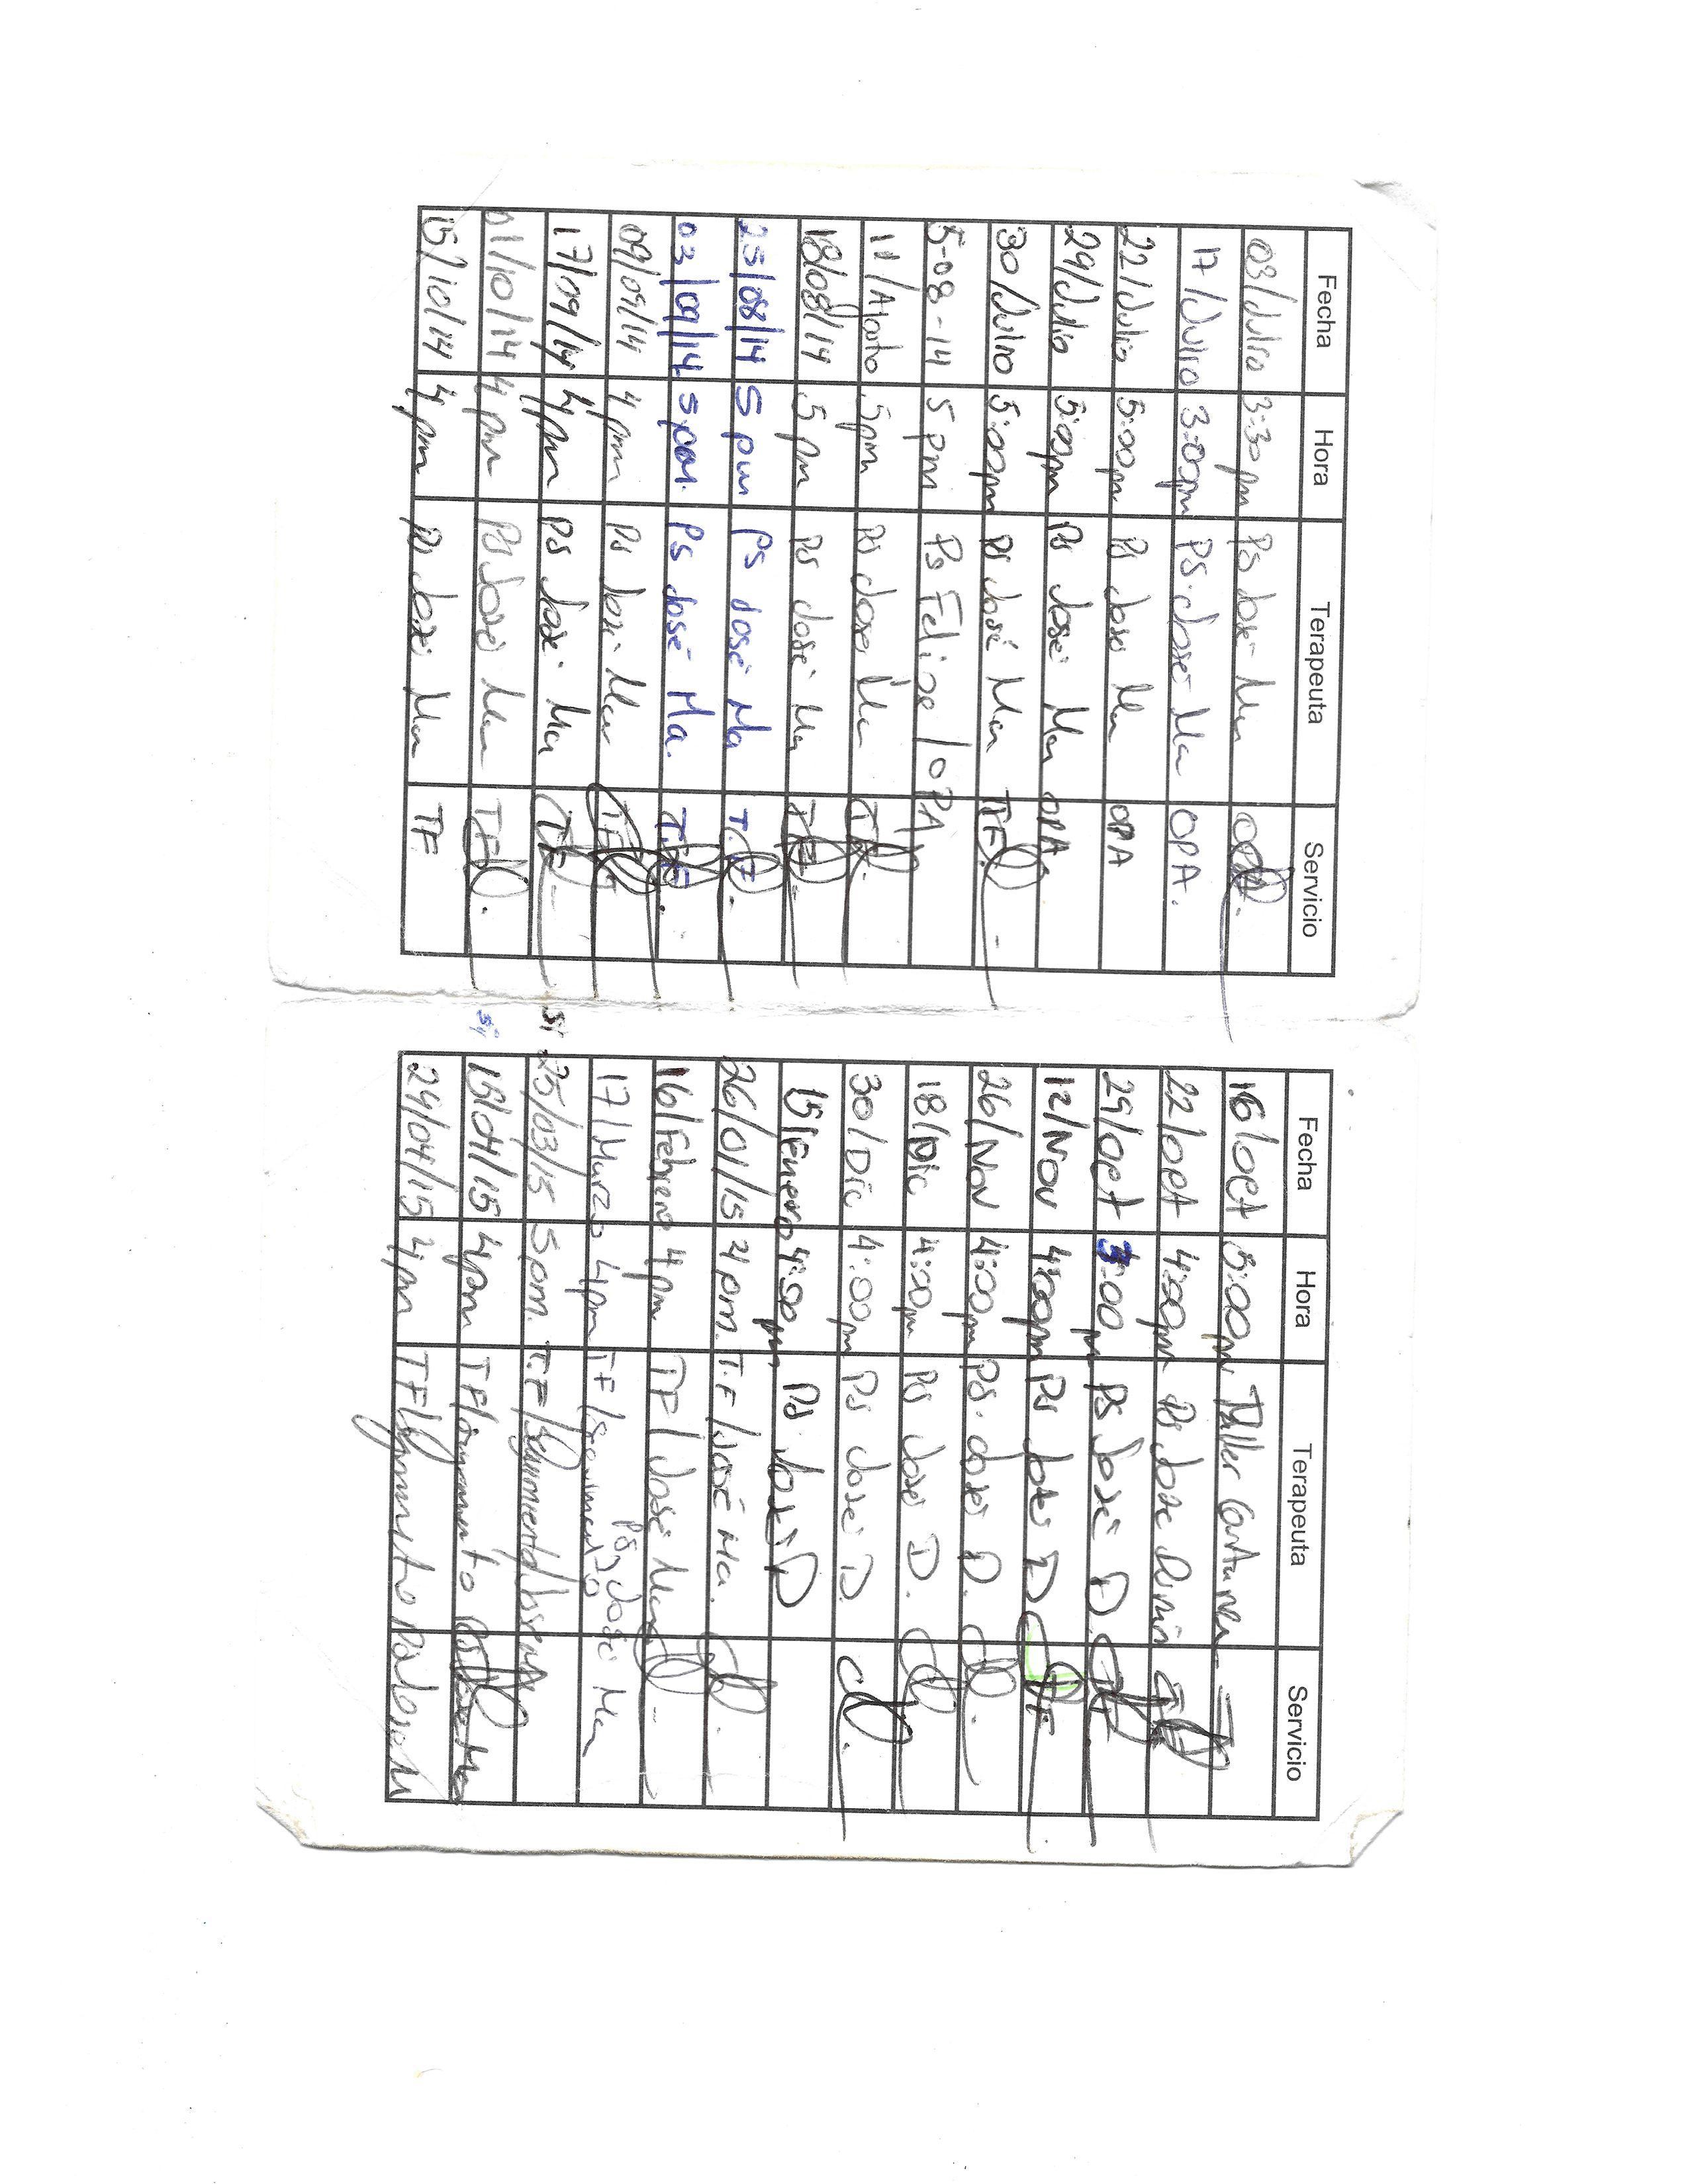 Fecha Hora Terapeuta Servicio
03/Julio 3:30pm Ps José Ma OPA.
17/Julio 3:00pm Ps. José Ma OPA.
22/Julio 5:00pm Ps José Ma OPA
29/Julio 5:00pm Ps José Ma OPA
30/Julio 5:00pm Ps José Ma TF.
5-08-14 5pm Ps Felipe / OPA
11/Agosto 5pm Ps José Ma TF.
18/08/14 5pm Ps José Ma TF
25/08/14 5 pm Ps José Ma T.F.
03/09/14 5 pm. Ps José Ma. T.F.
09/09/14 4pm Ps José Ma TF
17/09/14 4pm Ps José Ma TF
01/10/14 4pm Ps José Ma TF
15/10/14 4pm Ps José Ma TF
Si
Si
Fecha Hora Terapeuta Servicio
16/Oct 5:00pm Taller
22/Oct 4:00pm Ps José
29/Oct 3:00 pm Ps José D. TF
12/Nov 4:00pm Ps José D TF
26/Nov 4:00pm Ps. José D.
18/Dic 4:00pm Ps José D.
30/Dic 4:00pm Ps José D.
15/Enero 4:00 pm Ps José D
26/01/15 4pm. T.F /José Ma.
16/Febrero 4pm. TF / José Ma
17/Marzo 4pm TF /Seguimiento Ps José Ma
25/03/15 5pm. T.F/Seguimiento/José Ma
15/04/15 4pm TF/
24/04/15 4pm TF/